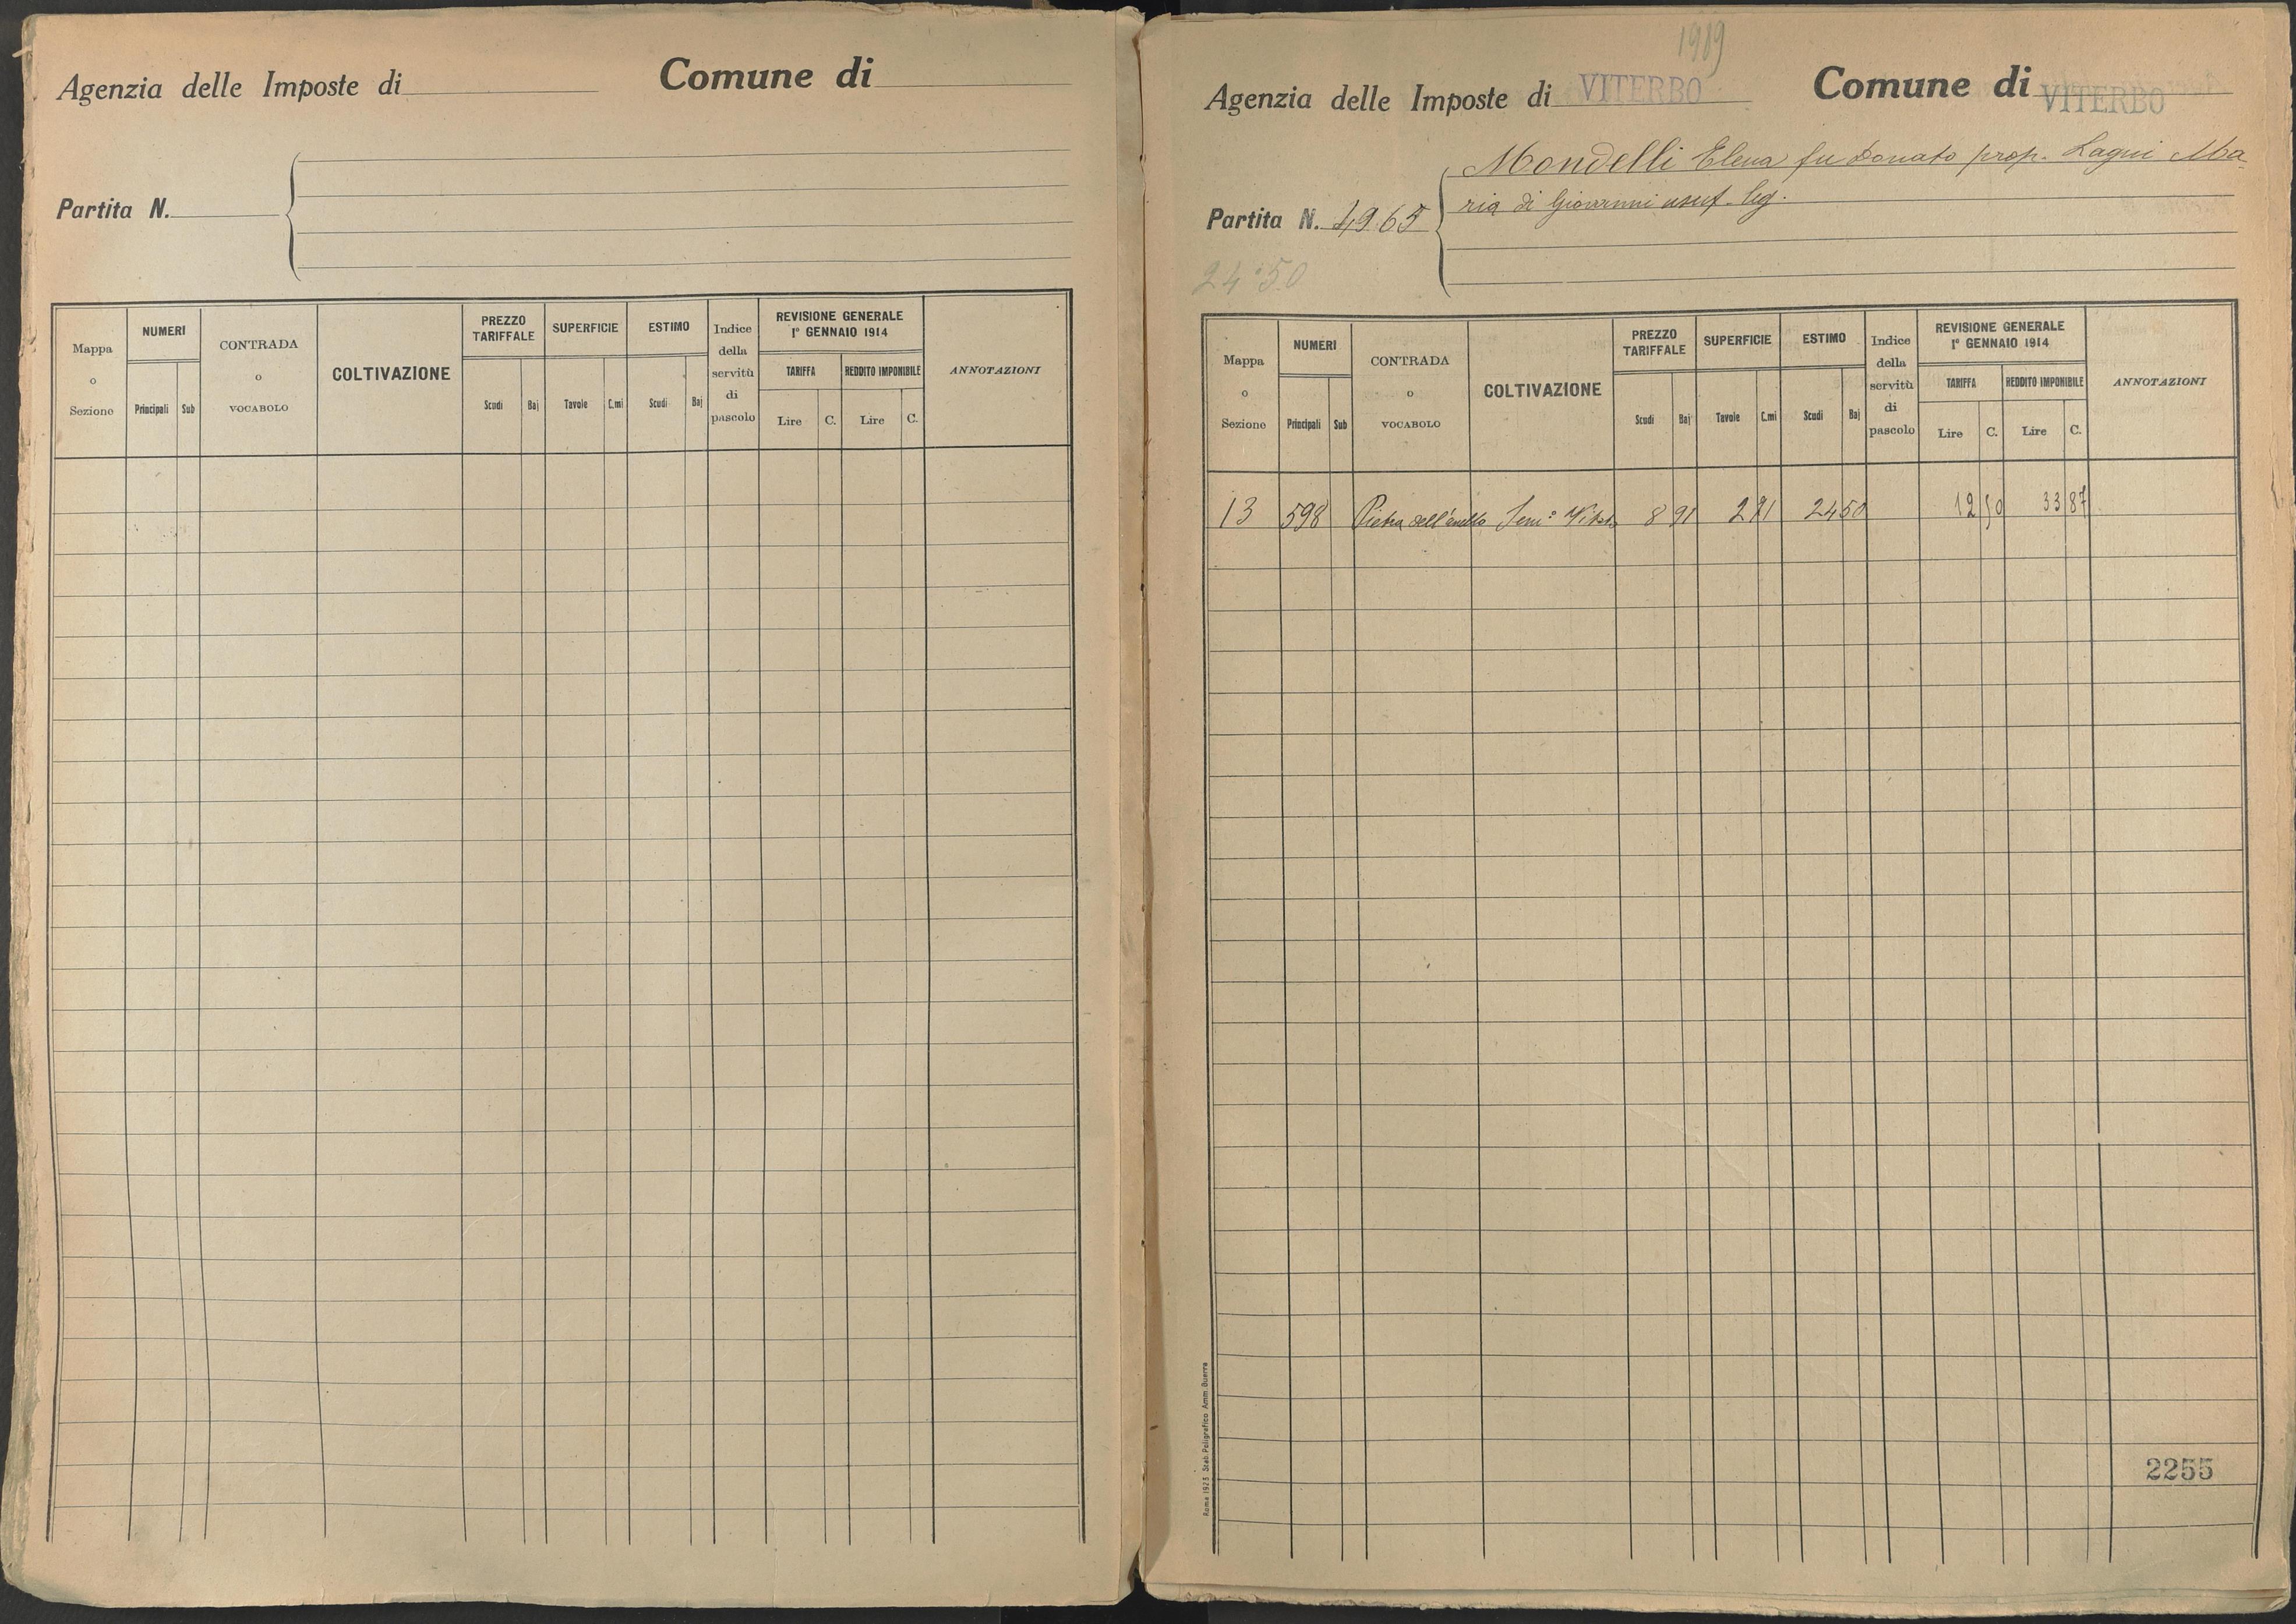 Agenzia delle Imposte di
Comune di
Partita N.
Mappa o Sezione
NUMERI
Principali
Sub
CONTRADA o VOCABOLO
COLTIVAZIONE
PREZZO TARIFFALE
Scudi
Baj
SUPERFICIE
Tavole
C.mi
ESTIMO
Scudi
Baj
Indice della servitù di pascolo
REVISIONE GENERALE
1° GENNAIO 1914
TARIFFA
Lire
C.
REDDITO IMPONIBILE
Lire
C.
ANNOTAZIONI
1989
Agenzia delle Imposte di VITERBO
Comune di VITERBO
Mondelli Elena fu Donato prop. Lagui Ma
ria di Giovanni usuf. leg.
Partita N. 4965
24:50
Mappa o Sezione
NUMERI
Principali
Sub
CONTRADA o VOCABOLO
COLTIVAZIONE
PREZZO TARIFFALE
Scudi
Baj
SUPERFICIE
Tavole
C.mi
ESTIMO
Scudi
Baj
Indice della servitù di pascolo
REVISIONE GENERALE
1° GENNAIO 1914
TARIFFA
Lire
C.
REDDITO IMPONIBILE
Lire
C.
ANNOTAZIONI
13 598 Pietra dell'anello Sem° Vitato 8 91 2 71 24 50 12 50 33 87
2255
Roma 1923 Stab. Poligrafico Amm. Guerra